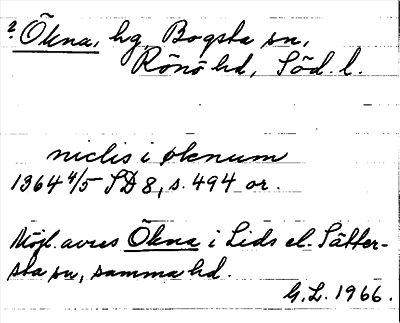 ? Ökna, hg, Bogsta sn,
Rönö hd, Söd. l.
niclis i øknum
1364 4/5 SD 8, s. 494 or.
Möjl. avses Ökna i Lids el. Sätter-
sta sn, samma hd.
G.L. 1966.